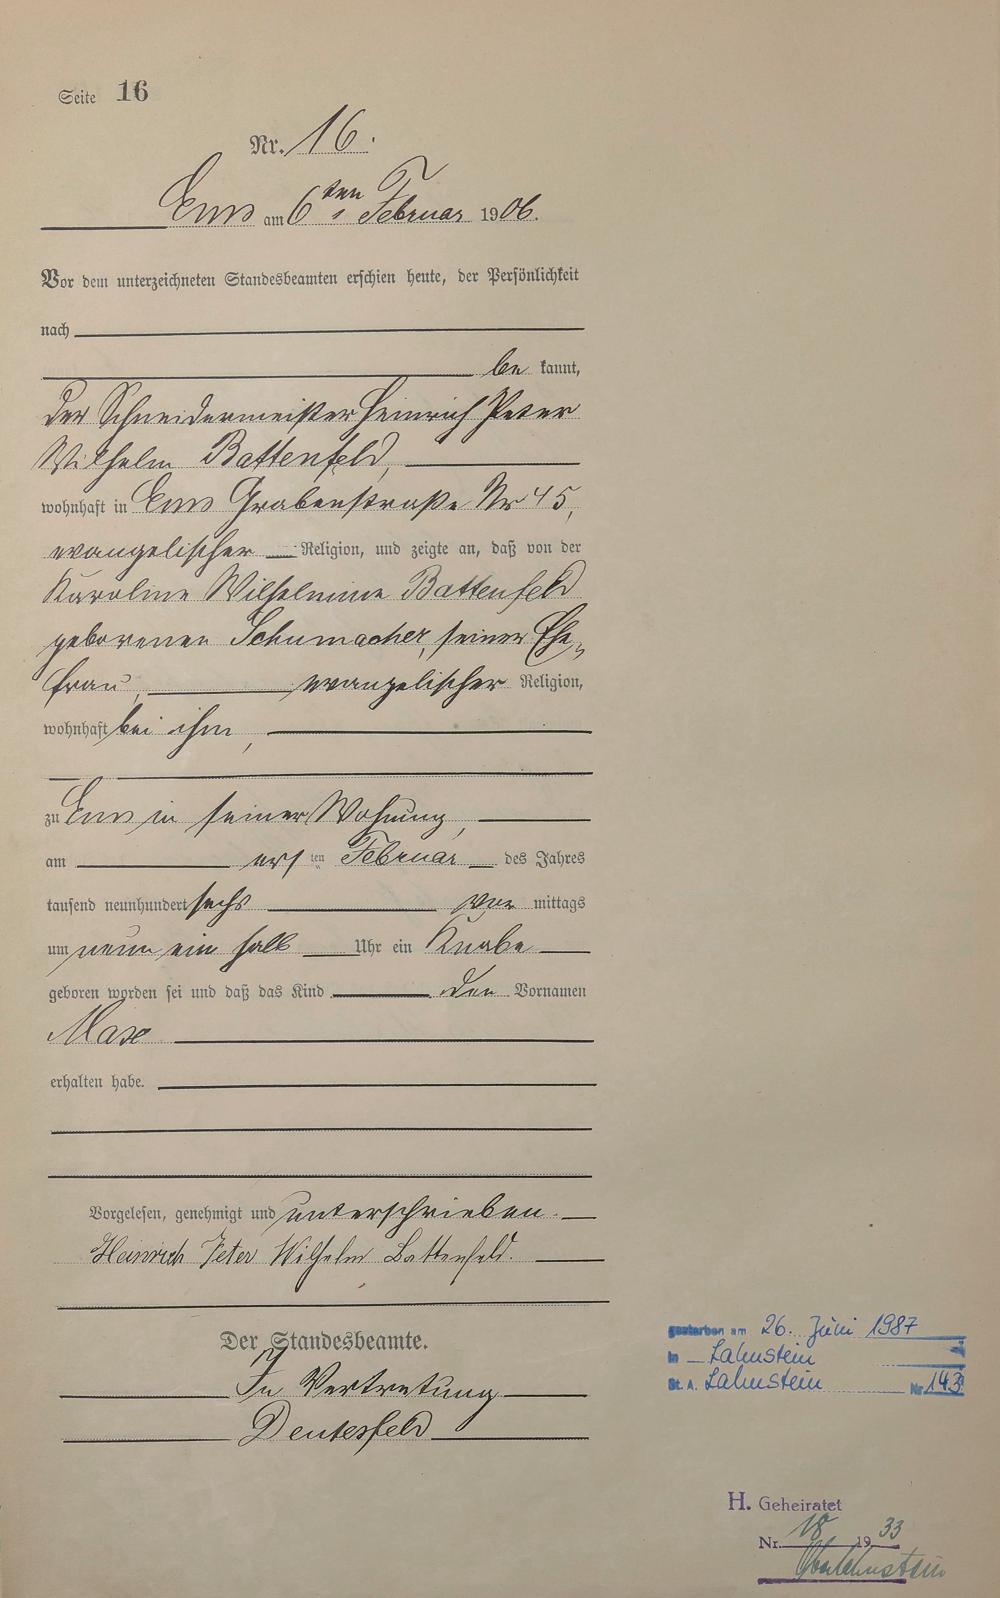 Seite 16
Nr. 16.
Ems am 6ten Februar 1906.
Vor dem unterzeichneten Standesbeamten erschien heute, der Persönlichkeit
nach
be kannt,
der Schneidermeister Heinrich Peter
Wilhelm Battenfeld,
wohnhaft in Ems Grabenstraße Nr 45,
evangelischer Religion, und zeigte an, daß von der
Karoline Wilhelmine Battenfeld
geborenen Schumacher, seiner Ehe„
frau, evangelischer Religion,
wohnhaft bei ihm,
zu Ems in seiner Wohnung,
am ersten Februar des Jahres
tausend neunhundert sechs vor mittags
um neun ein halb Uhr ein Knabe
geboren worden sei und daß das Kind den Vornamen
Max
erhalten habe.
Vorgelesen, genehmigt und unterschrieben.
Heinrich Peter Wilhelm Battenfeld.
Der Standesbeamte.
In Vertretung
Deutesfeld
gestorben am 26. Juni 1987
in Lahnstein
St. A. Lahnstein Nr. 143
H. Geheiratet
Nr. 18 1933
Oberlahnstein